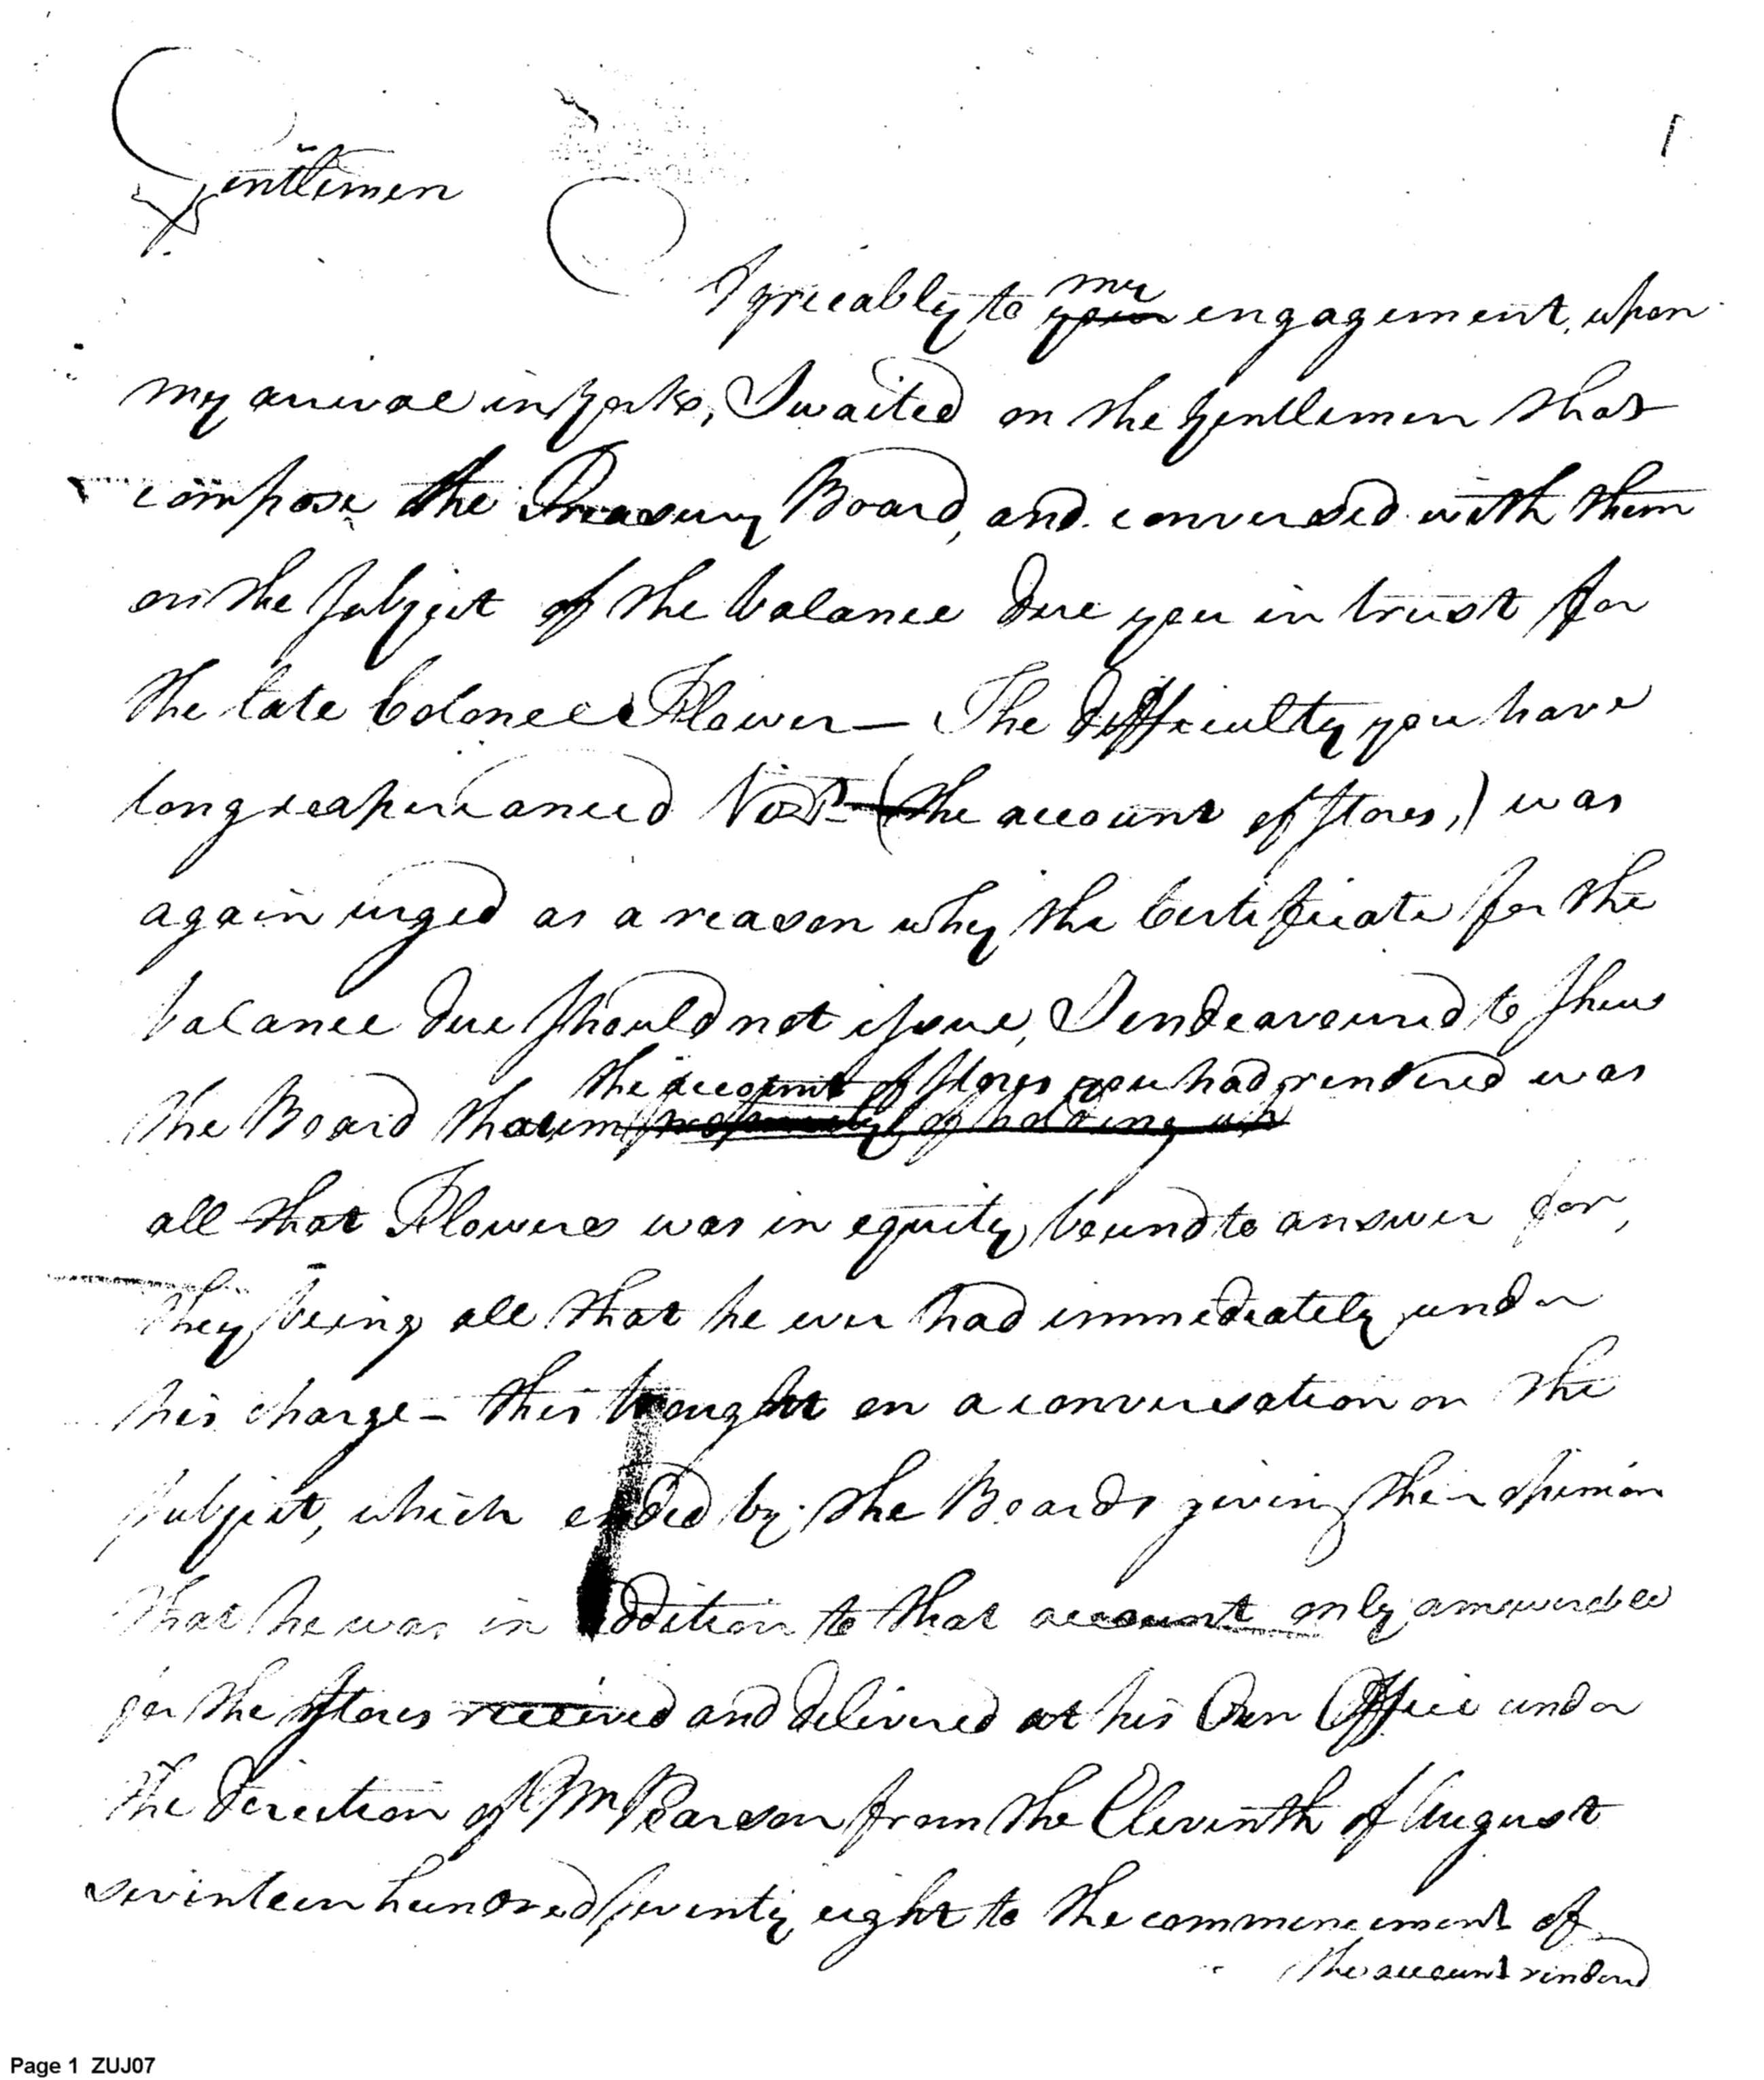 Gentlemen
my
Agreeably to your engagement, upon
my arrival in York, I waited on the Gentlemen that
compose the Treasury Board, and conversed with them
on the subject of the balance due you in trust for
the late Colonel Flower — The difficulty you have
long experianced Vizt (the account of stores,) was
again urged as a reason why the Certificate for the
balance due should not issue, I endeavoured to shew
the account of stores you had rendered was
the Board that of holding up
all that Flower was in equity bound to answer for,
they being all that he ever had immediately under
his charge – this brought on a conversation on the
subject, which ended by the Boards giving their opinion
that he was in addition to that account only
for the stores received and delivered at his Own Office under
the direction of Mr Pearson from the Eleventh of August
seventeen hundred seventy eight to the commencement of
the account rendered
Page 1 ZUJ07